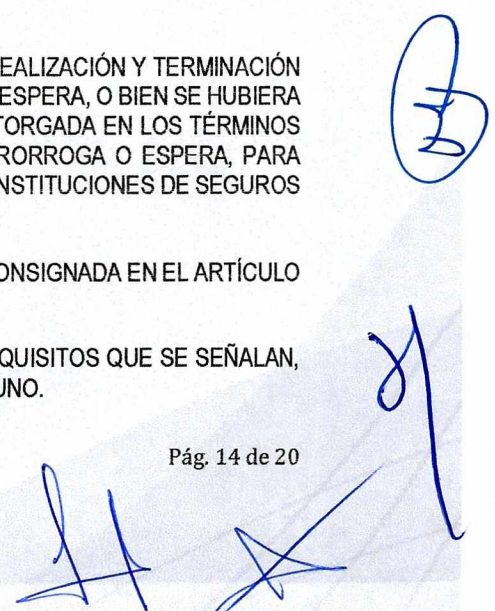 EALIZACIÓN Y TERMINACIÓN
ESPERA, O BIEN SE HUBIERA
TORGADA EN LOS TÉRMINOS
RORROGA O ESPERA, PARA
NSTITUCIONES DE SEGUROS
ONSIGNADA EN EL ARTÍCULO
QUISITOS QUE SE SEÑALAN,
UNO.
Pág. 14 de 20